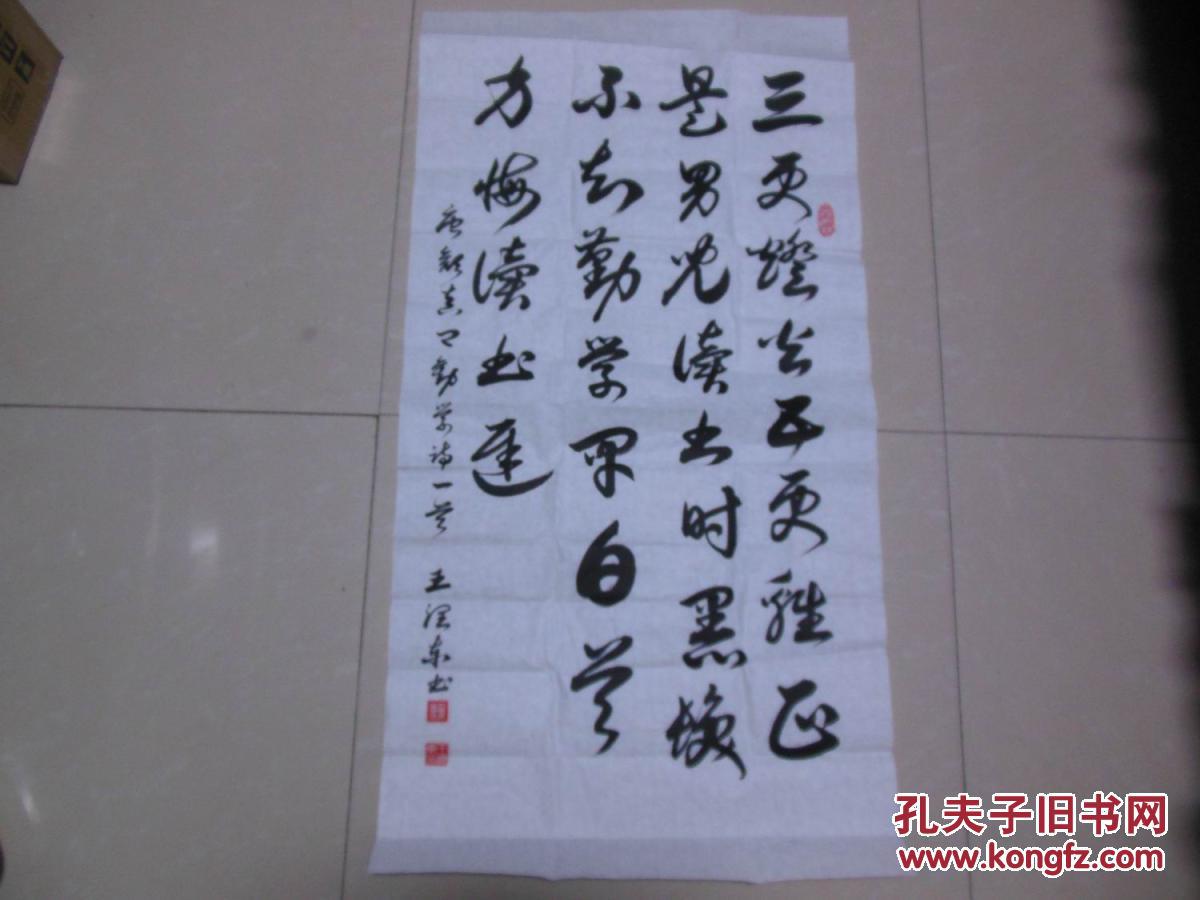 三更燈火五更雞正
是男儿读书时黑发
不知勤学早白首
方悔读书迟
唐颜真卿劝学诗一首 王泽东书
孔夫子旧书网
www.kongfz.com